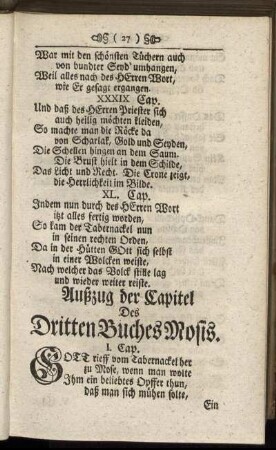 ( 27 )
War mit den schönsten Tüchern auch
von bundter Seyd' umhangen,
Weil alles nach des HErren Wort,
wie Er gesagt ergangen.
XXXIX Cap.
Und daß des HErren Priester sich
auch heilig möchten kleiden,
So machte man die Röcke da
von Scharlak, Gold und Seyden,
Die Schellen hingen an dem Saum.
Die Brust hielt in dem Schilde,
Das Licht und Recht. Die Crone zeigt,
die Herrlichkeit im Bilde.
XL. Cap.
Indem nun durch des HErren Wort
itzt alles fertig worden,
So kam der Tabernackel nun
in seinen rechten Orden,
Da in der Hütten GOtt sich selbst
in einer Wolcken weiste,
Nach welcher das Volck stille lag
und wieder weiter reiste.
Außzug der Capitel
Des
Dritten Buches Mosis.
I. Cap.
GOTT rieff vom Tabernackel her
zu Mose, wenn man wolte
Ihm ein beliebtes Opffer thun,
daß man sich mühen solte,
Ein